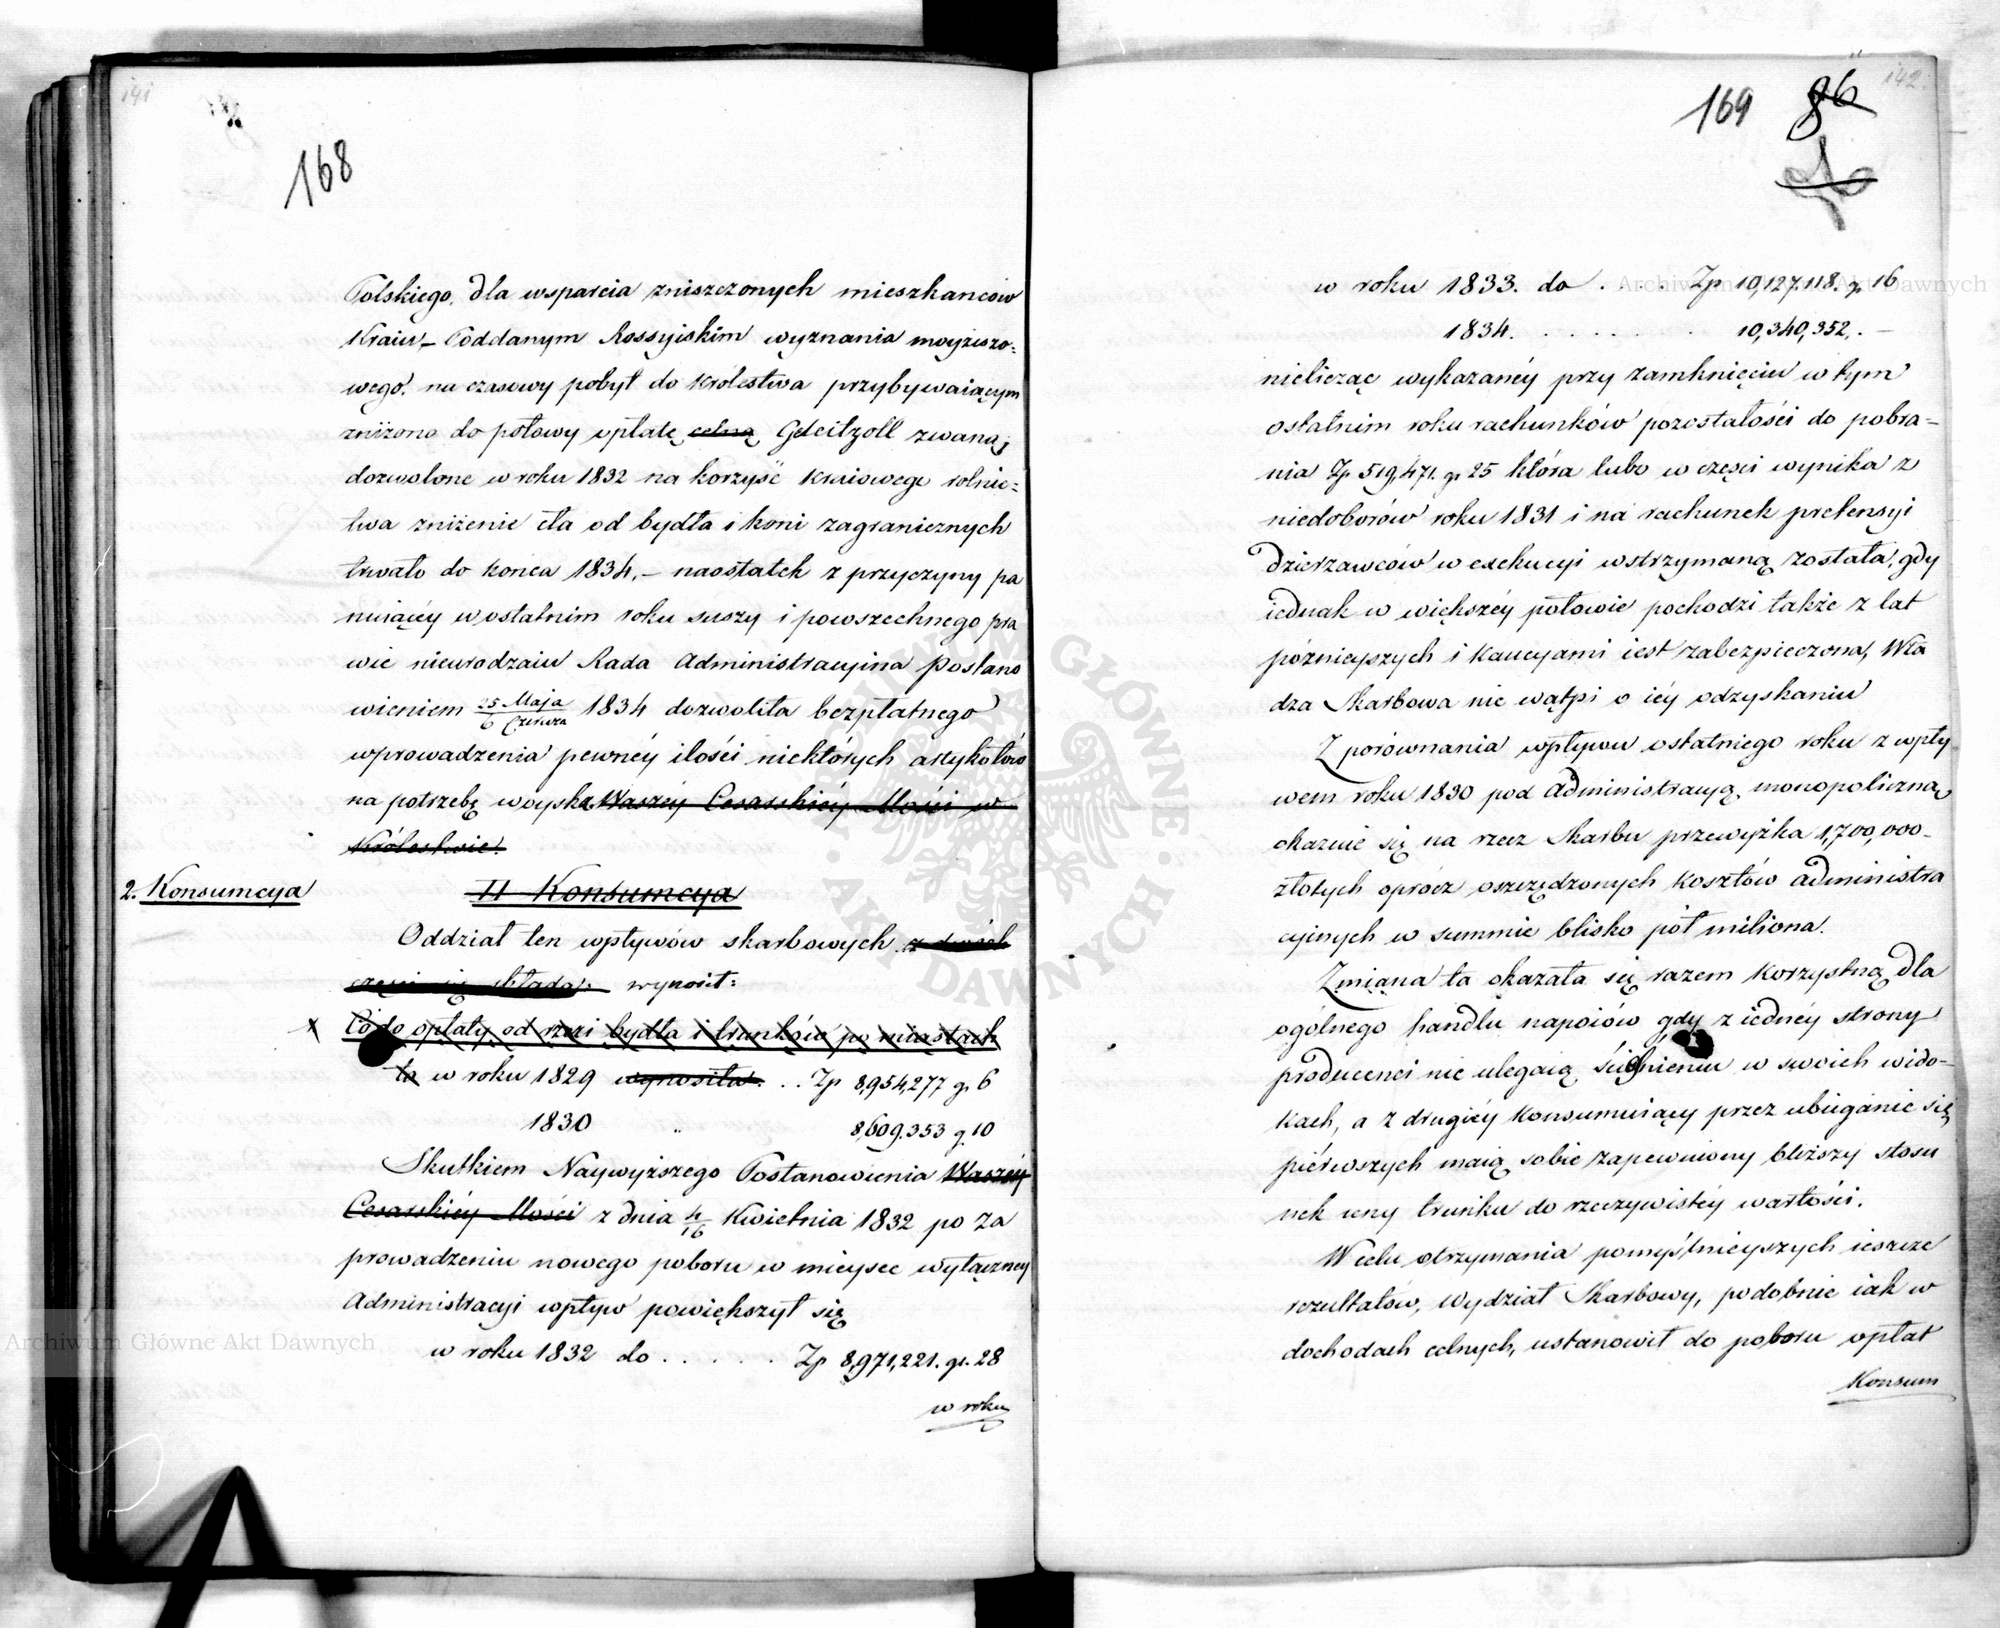 141
168
Polskiego, dla wsparcia zniszczonych mieszkańców
Kraiu – Poddanym Rossyiskim wyznania moyżeszo=
wego na czasowy pobyt do Królestwa przybywaiącym
zniżono do połowy opłatę celną Geleitzoll zwaną;
dozwolone w roku 1832 na korzyść Kraiowego rolnic=
twa zniżenie cła od bydła i koni zagranicznych
trwało do końca 1834, – naostatek z przyczyny pa
nuiącéy w ostatnim roku suszy i powszechnego pra
wie nieurodzaiu Rada Administracyina postano
wieniem 25 Maja / 6 Czerwca 1834 dozwoliła bezpłatnego
wprowadzenia pewnéy ilości niektórych artykułów
na potrzebę woyska Waszéy Cesarskiéy Mości w
Królestwie.
2. Konsumcya
II Konsumcya
Oddział ten wpływów skarbowych z dwóch
części się składa: wynosił:
x Co do opłaty od rzezi bydła i trunków po miastach
ta w roku 1829 wynosiła . . . Zp 8,954,277 g. 6
1830 „ 8,609.353 g. 10
Skutkiem Naywyższego Postanowienia Waszéy
Cesarskiéy Mości z dnia 4/16 Kwietnia 1832 po za
prowadzeniu nowego poboru w mieysce wyłączney
Administracyi wpływ powiększył się
w roku 1832 do . . . . . Zp 8,971,221. gr. 28
w roku
142
169 86
w roku 1833. do . . . . Zp 10,127.118. g. 16
1834. . . . . . . 10,340,352, . —
nielicząc wykazanéy przy zamknięciu w tym
ostatnim roku rachunków pozostałości do pobra=
nia Zp 519,471. gr 25 która lubo w części wynika z
niedoborów roku 1831 i na rachunek pretensyi
dzierzawców w exekucyi wstrzymaną została, gdy
iednak w większéy połowie pochodzi także z lat
późnieyszych i kaucyami iest zabezpieczona, Wła
dza Skarbowa nie wątpi o iéy odzyskaniu
Z porównania wpływu ostatniego roku z wpły
wem roku 1830 pod Administracyą monopoliczną
okazuie się na rzecz Skarbu przewyżka 1,700,000-
złotych oprócz oszczędzonych kosztów Administra
cyinych w summie blisko pół miliona.
Zmiana ta okazała się razem korzystną dla
ogólnego handlu napoiów gdy z iednéy strony
producenci nie ulegaią ścieśnieniu w swoich wido-
kach, a z drugiéy Konsumuiący przez ubieganie się
piérwszych maią sobie zapewniony bliższy stosu
nek ceny trunku do rzeczywistéy wartości.
W celu otrzymania pomyślnieyszych ieszcze
rezultatów, Wydział Skarbowy, podobnie iak w
dochodach celnych, ustanowił do poboru opłat
Konsum
Archiwum Główne Akt Dawnych
Archiwum Główne Akt Dawnych
ARCHIWUM GŁÓWNE · AKT DAWNYCH ·